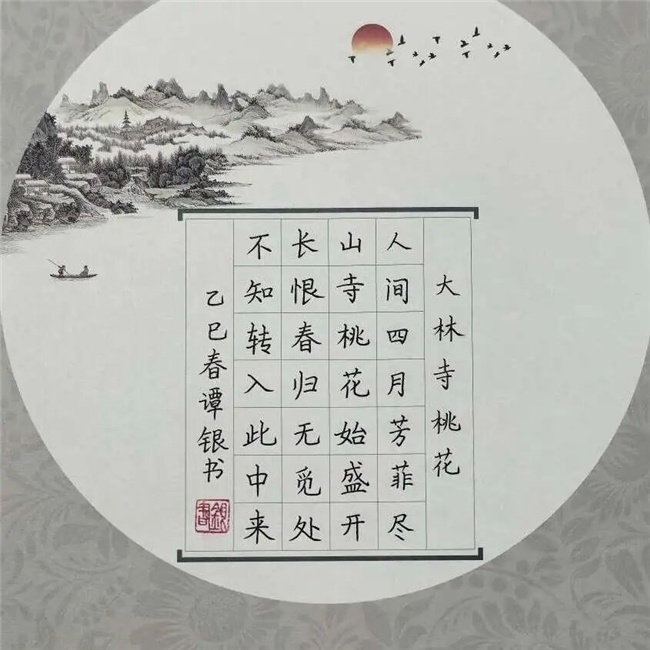 大林寺桃花
人间四月芳菲尽
山寺桃花始盛开
长恨春归无觅处
不知转入此中来
乙巳春谭银书